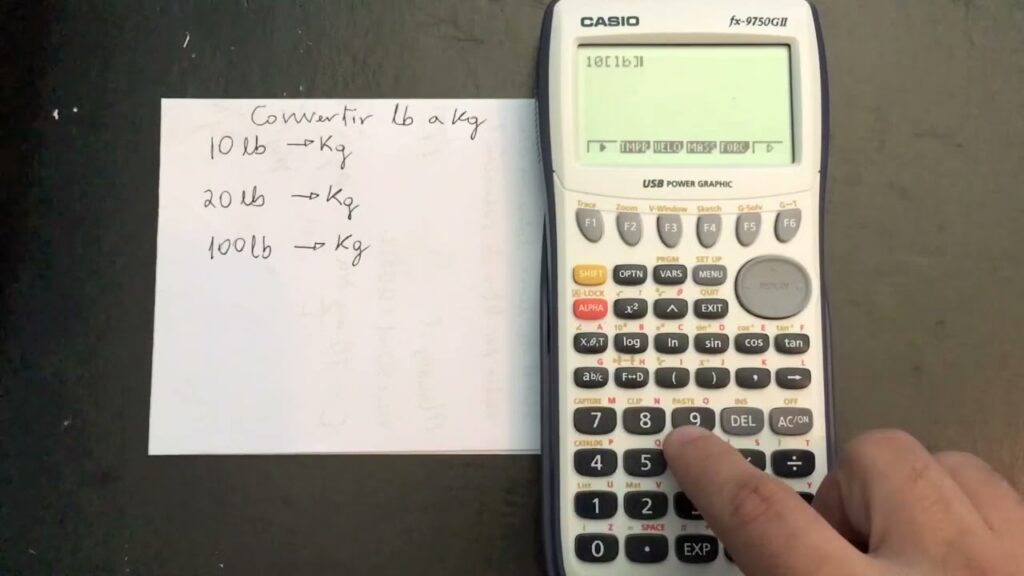 Convertir lb a Kg
10 lb → Kg
20 lb → Kg
100 lb → Kg
CASIO fx-9750GII
10[lb]
TMPR VELO MASS FORC
USB POWER GRAPHIC
Trace Zoom V-Window Sketch G-Solv G↔T
F1 F2 F3 F4 F5 F6
PRGM SET UP
SHIFT OPTN VARS MENU
A-LOCK QUIT
ALPHA x² ^ EXIT
A B C sin⁻¹ D cos⁻¹ E tan⁻¹ F
X,θ,T log ln sin cos tan
G H I J K L
ab/c F↔D ( ) , →
CAPTURE M CLIP N PASTE O INS OFF
7 8 9 DEL AC/ON
CATALOG P Q S T
4 5 ÷
List U Mat V Y
1 2
Z SPACE π
0 . EXP